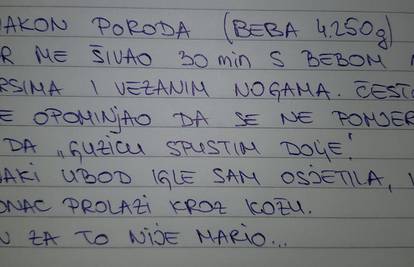 NAKON PORODA (BEBA 4.250g)
ME ŠIVAO 30 min S BEBOM
I VEZANIM NOGAMA.
OPOMINJAO DA SE NE
DA „GUZICU SPUSTIM DOLJE!
UBOD IGLE SAM OSJETILA,
PROLAZI KROZ KOŽU.
ZA TO NIJE MARIO...